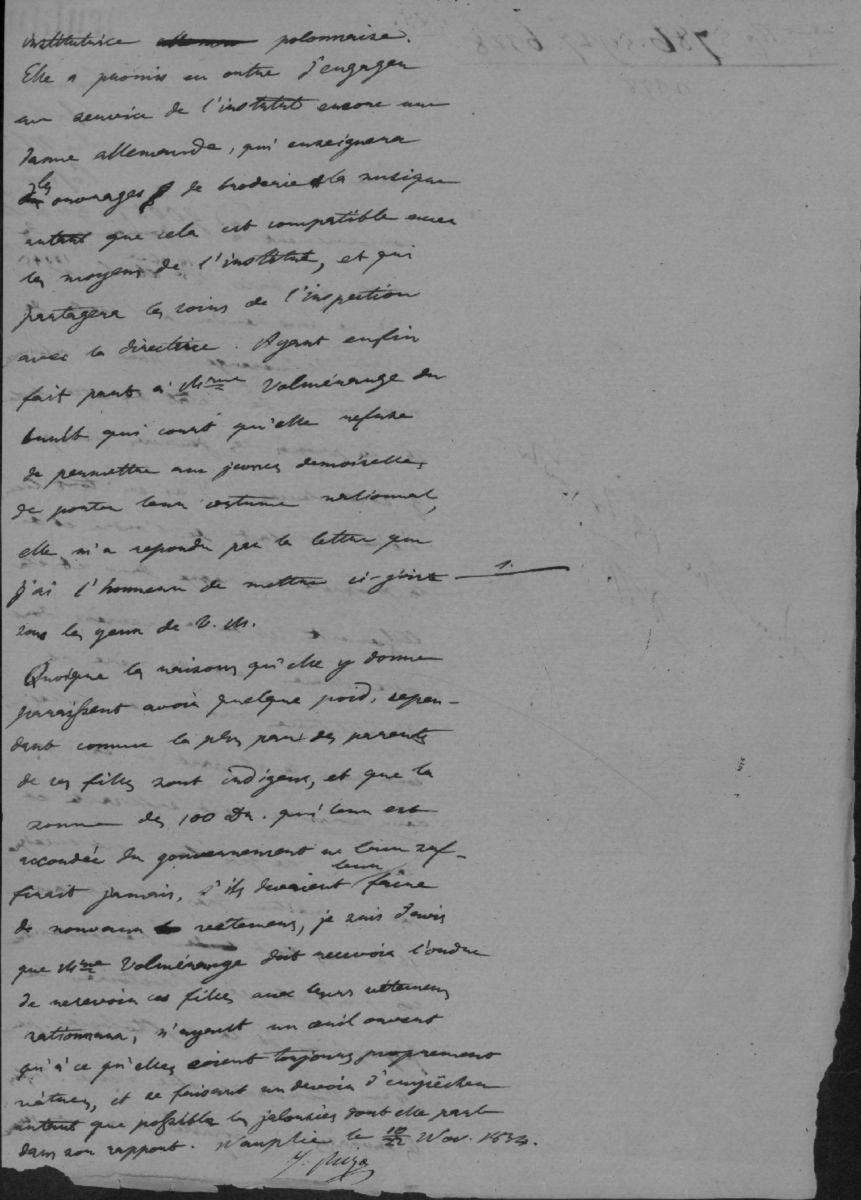 institutrice polonnaise.
Elle a promis en outre d'engager
au service de l'institut encore une
dame allemande, qui enseignera
les ouvrages de broderie & la musique
autant que cela est compatible avec
les moyens de l'institut, et qui
partagera les soins de l'inspection
avec la directrice. Ayant enfin
fait part à Mme Volmérange du
bruit qui court qu'elle refuse
de permettre aux jeunes demoiselles
de porter leur costume national,
elle m'a repondu par la lettre que
j'ai l'honneur de mettre ci-joint 1.
sous les yeux de V. M.
Quoique les raisons qu'elle y donne
paraissent avoir quelque poid, cepen-
dant comme la plus part des parents
de ces filles sont indigens, et que la
somme des 100 Dr. qui leur est
accordée du gouvernement ne leur suf-
firait jamais, s'ils devaient leur faire
de nouveaux vêtemens, je suis d'avis
que Mme Volmérange doit recevoir l'ordre
de recevoir ces filles avec leurs vêtemens
nationaux, n'ayant un œuil ouvert
qu'à ce qu'elles soient toujours proprement
vêtues, et se faisant un devoir d'empêcher
autant que possible les jalousies dont elle parle
dans son rapport. Nauplie le 10/22 Nov. 1834.